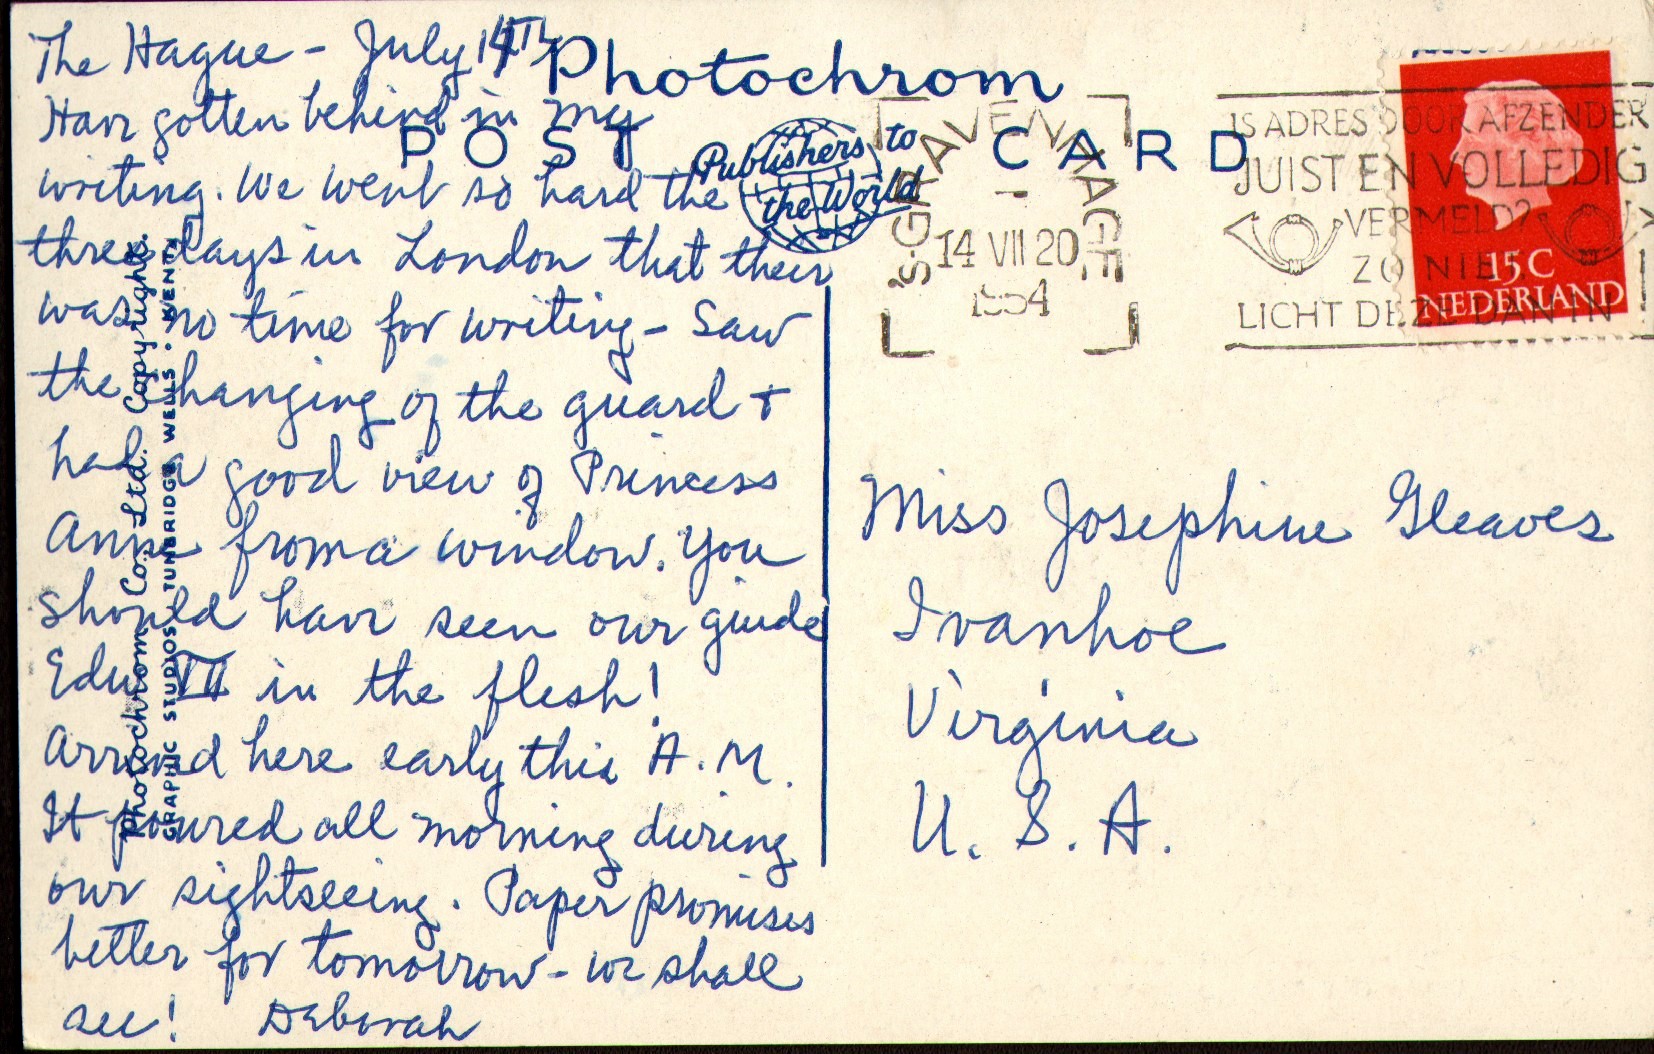 The Hague - July 14TH
Have gotten behind in my
writing. We went so hard the
three days in London that their
was no time for writing - Saw
the changing of the guard +
had a good view of Princess
Anne from a window. You
should have seen our guide
Edw VII in the flesh!
Arrived here early this A.M.
It poured all morning during
our sightseeing. Paper promises
better for tomorrow - we shall
see! Deborah
Photochrom
POST CARD
Publishers to
the World
Photochrom Co. Ltd. Copyrights.
GRAPHIC STUDIOS • TUNBRIDGE WELLS • KENT
'S-GRAVENHAGE
14 VII 20
1954
IS ADRES DOOR AFZENDER
JUIST EN VOLLEDIG
VERMELD?
ZO NIET
LICHT DEZE DAN IN
15 C
NEDERLAND
Miss Josephine Gleaves
Ivanhoe
Virginia
U. S. A.